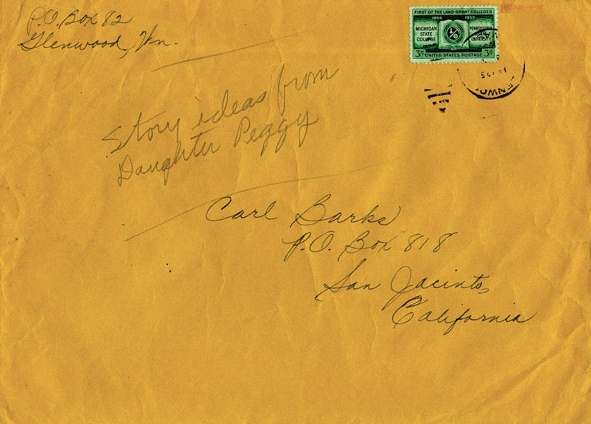 P.O. Box 82
Glenwood, Wn.
FIRST OF THE LAND-GRANT COLLEGES
1855 1955
MICHIGAN STATE COLLEGE
3¢ UNITED STATES POSTAGE 3¢
Story ideas from
Daughter Peggy
Carl Barks
P.O. Box 818
San Jacinto,
California